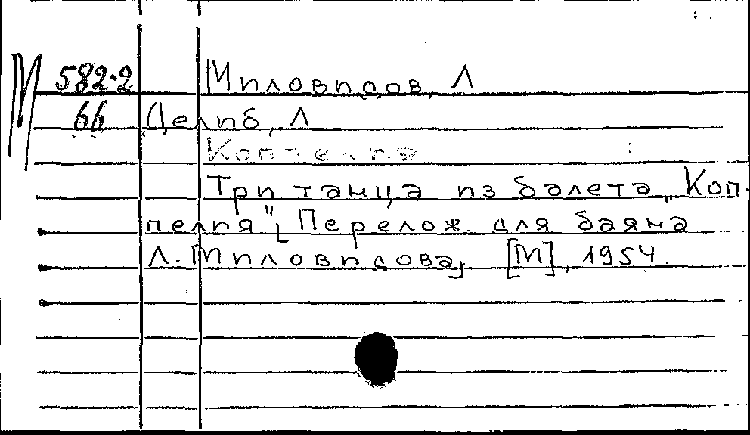 М 582-2 Миловидов, Л
66 Делиб, Л
Коппелия
Три танца из балета „Коп-
пелия". Перелож. для баяна
Л. Миловидова, [М], 1954.